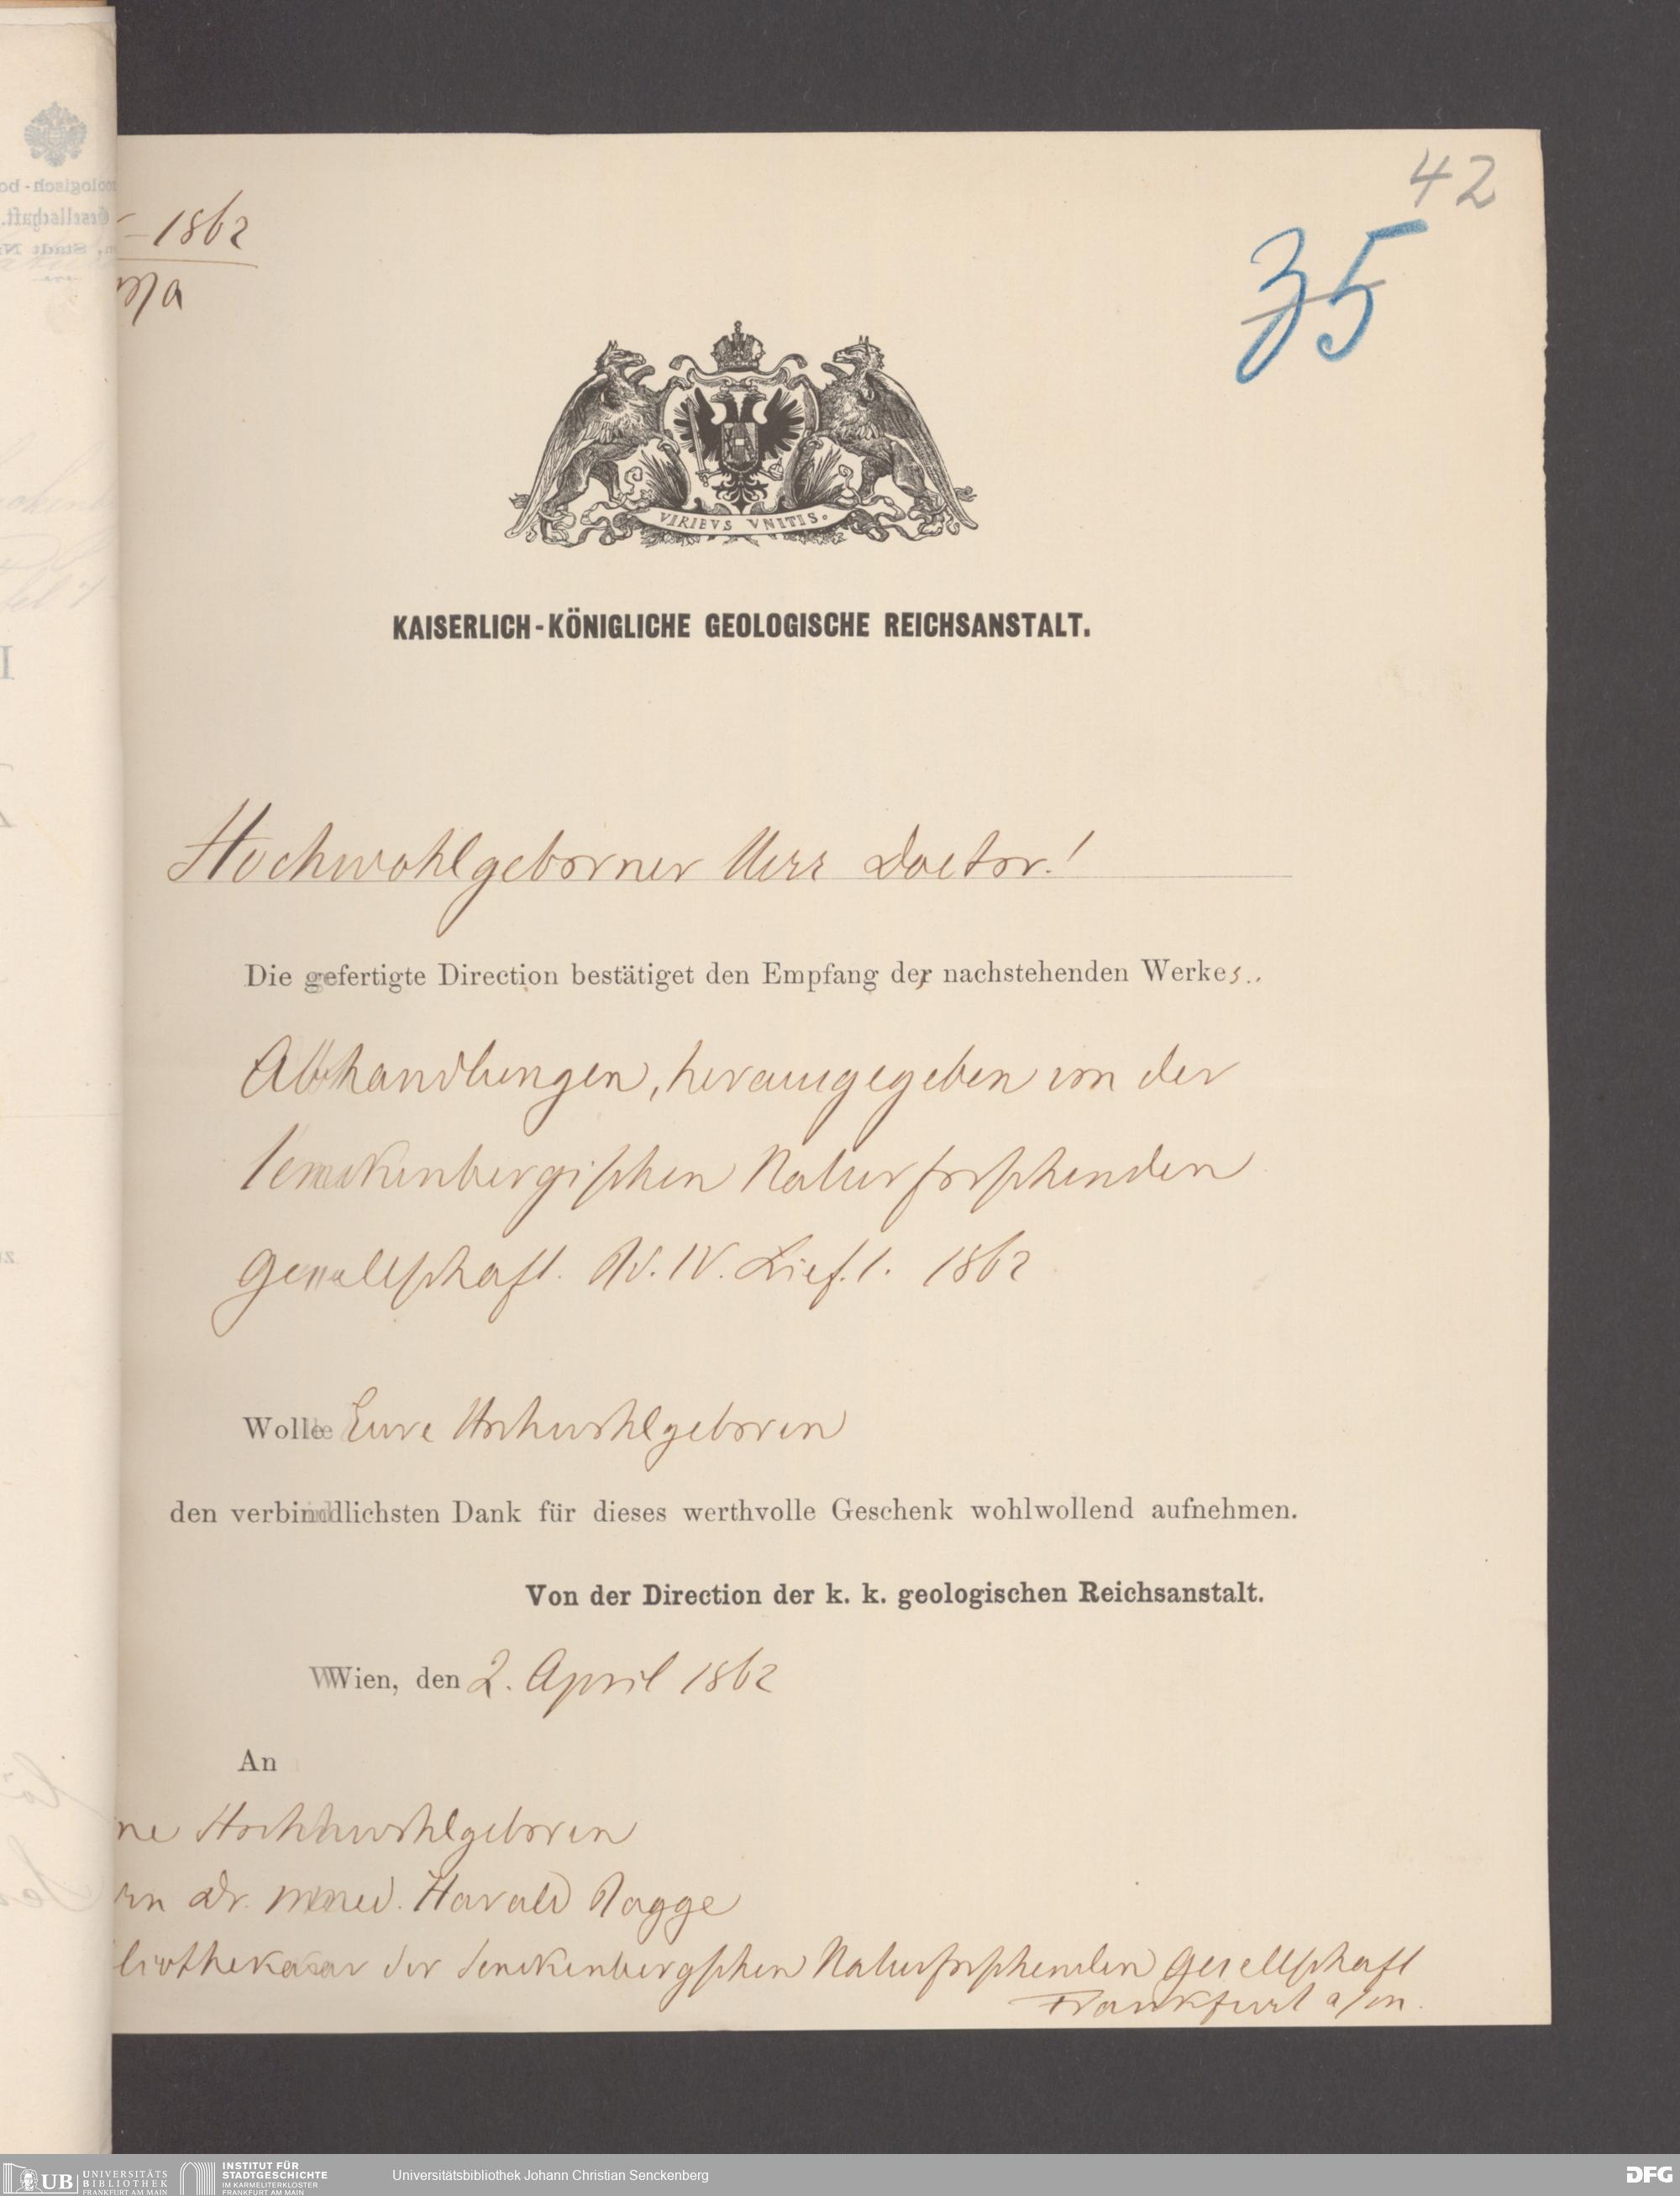 42
35
– 1862
VIRIBVS VNITIS.
KAISERLICH-KÖNIGLICHE GEOLOGISCHE REICHSANSTALT.
Hochwohlgeborner Herr Doctor!
Die gefertigte Direction bestätiget den Empfang des nachstehenden Werkes..
Abhandlungen, herausgegeben von der
Senckenbergischen Naturforschenden
Gesellschaft. Bd. IV. Lief. 1. 1862
Wolle Eure Hochwohlgeboren
den verbindlichsten Dank für dieses werthvolle Geschenk wohlwollend aufnehmen.
Von der Direction der k. k. geologischen Reichsanstalt.
Wien, den 2. April 1862
An
ne Hochwohlgeboren
rn Dr. med. Harald Bagge
bliothekar der Senckenbergschen Naturforschenden Gesellschaft
Frankfurt a/m.
UB UNIVERSITÄTS
BIBLIOTHEK
FRANKFURT AM MAIN
INSTITUT FÜR
STADTGESCHICHTE
IM KARMELITERKLOSTER
FRANKFURT AM MAIN
Universitätsbibliothek Johann Christian Senckenberg
DFG